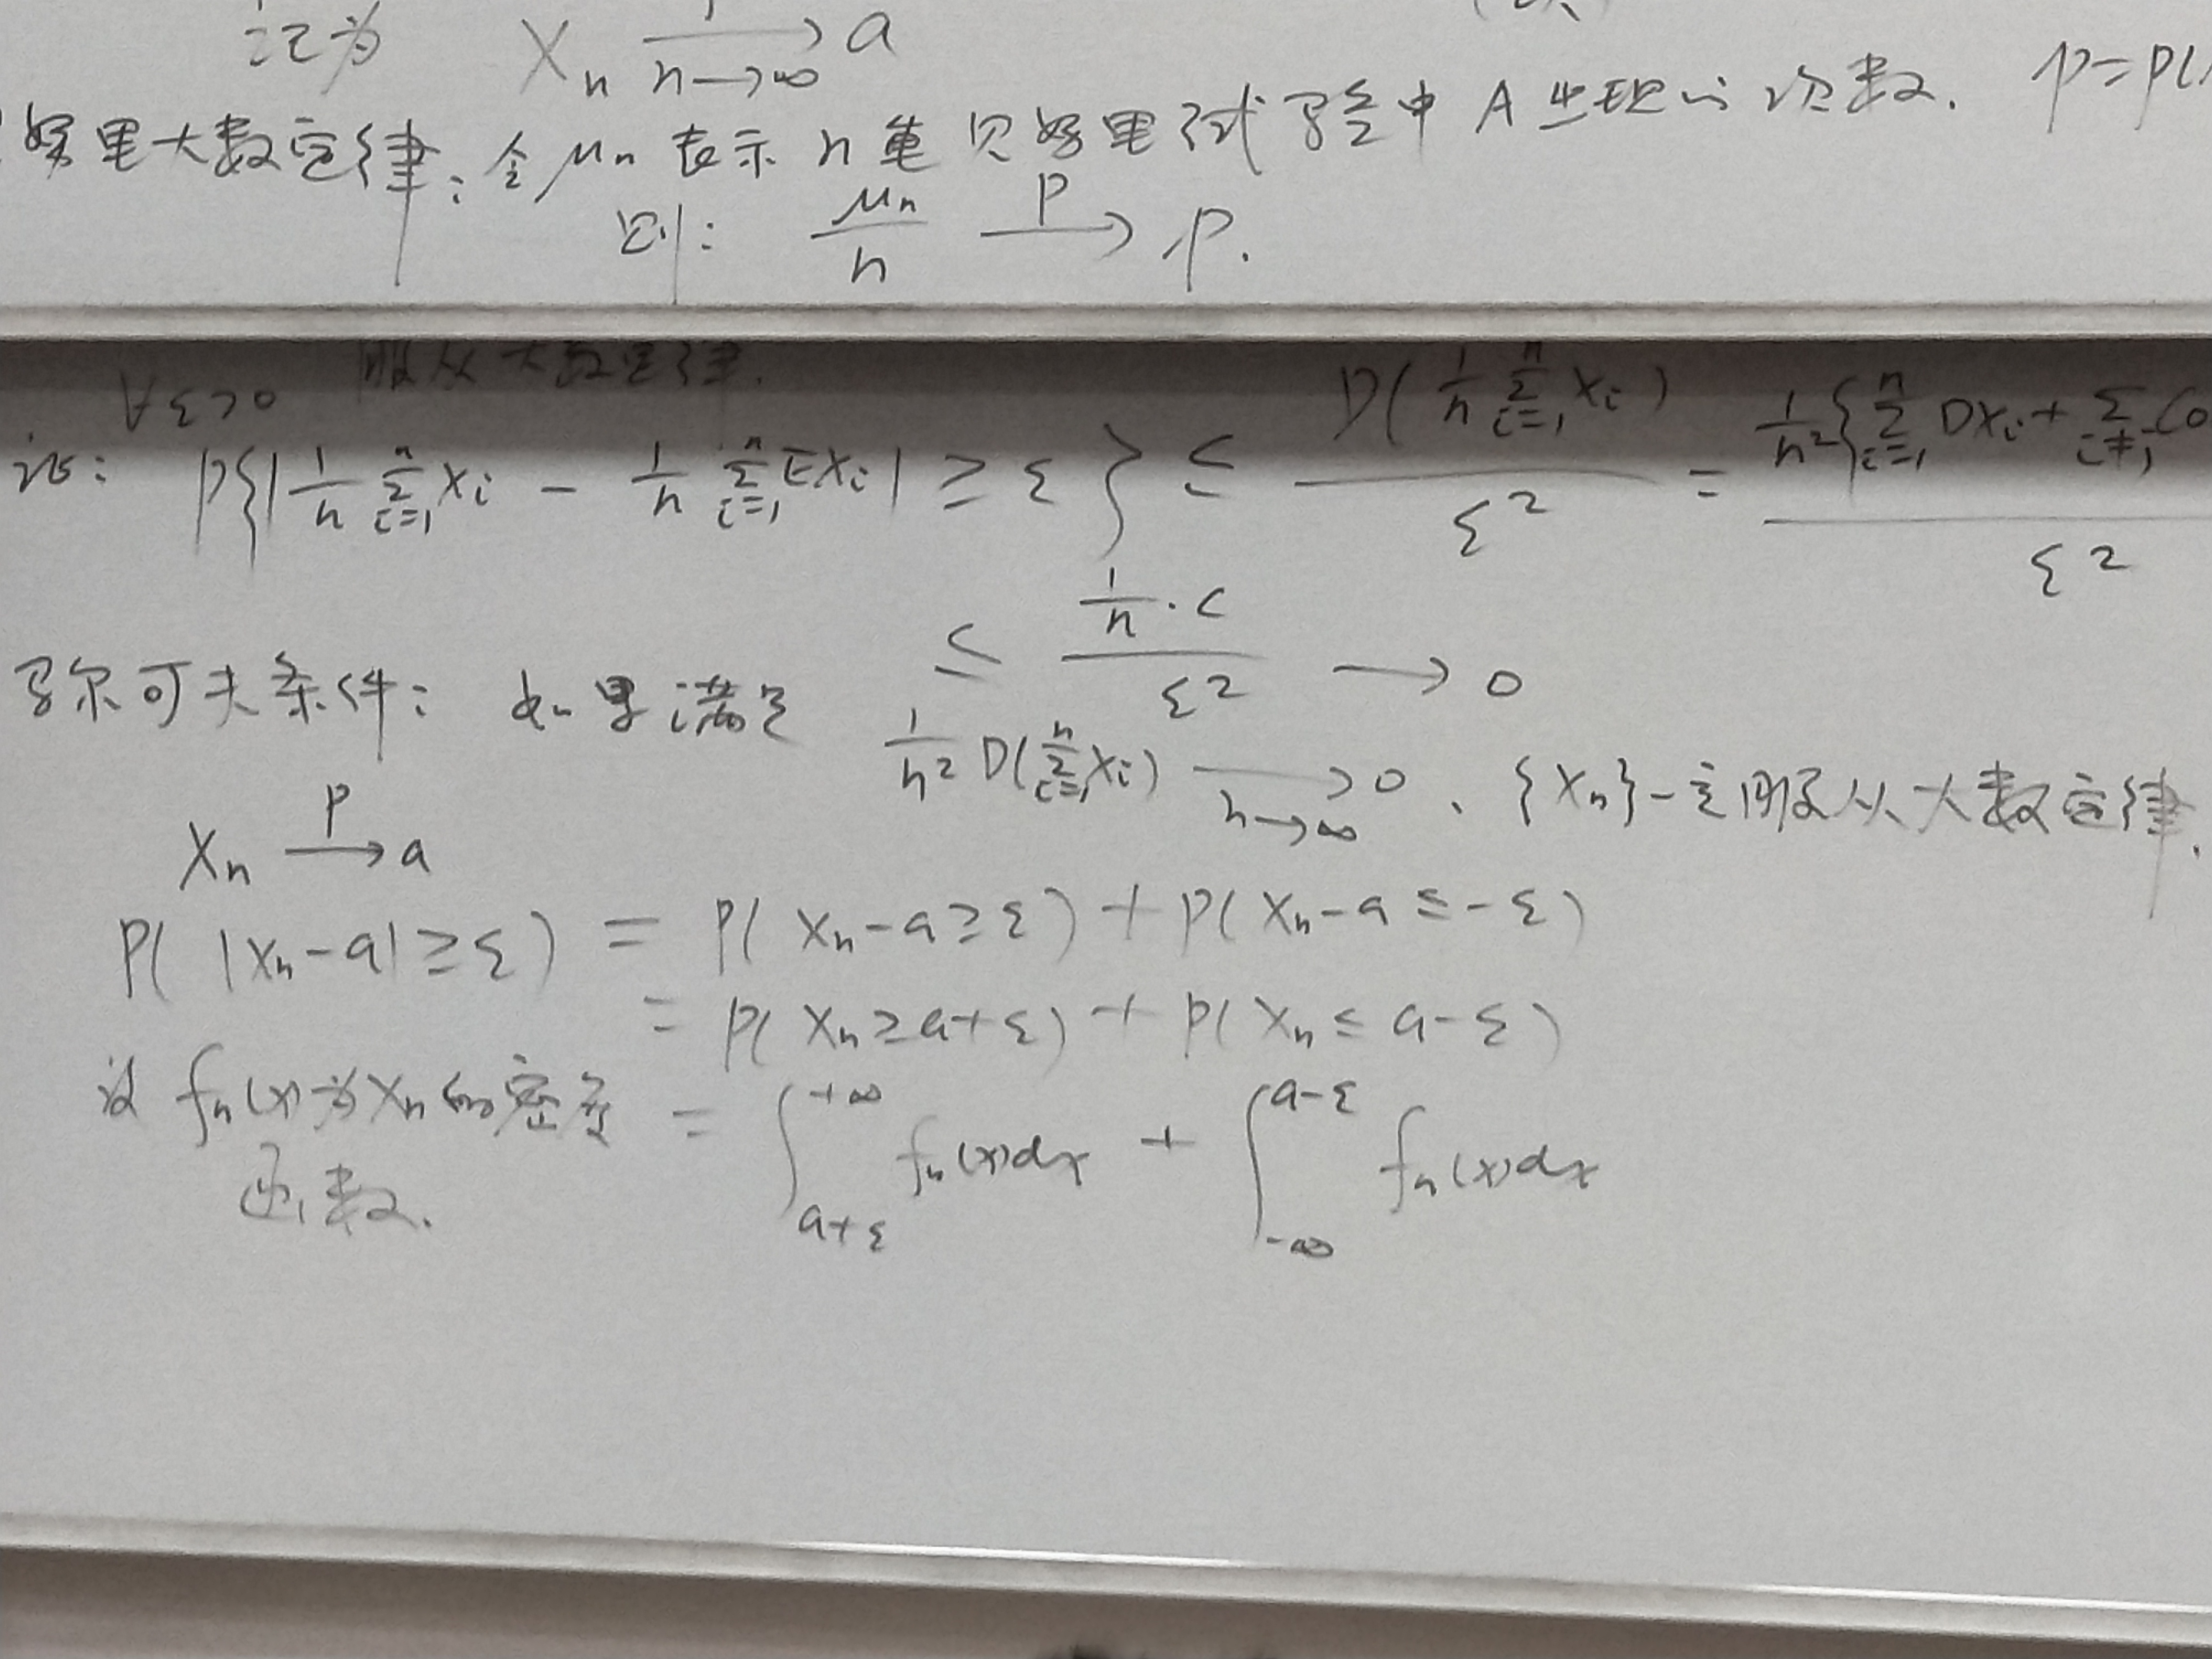 记为 Xₙ →(n→∞) a
努里大数定律: 令 μₙ 表示 n 重贝努里试验中 A 出现的次数. p=P(
则: μₙ/n →(P) p.
∀ε>0 服从大数定律.
证: P{|1/n Σ(i=1,n) Xᵢ − 1/n Σ(i=1,n) EXᵢ| ≥ ε} ≤ D(1/n Σ(i=1,n) Xᵢ)/ε² = 1/n²{Σ(i=1,n) DXᵢ + Σ(i≠j) Co /ε²
≤ (1/n · C)/ε² → 0
马尔可夫条件: 如果满足 1/n² D(Σ(i=1,n) Xᵢ) →(n→∞) 0、{Xₙ}一定服从大数定律.
Xₙ →(P) a
P( |Xₙ−a| ≥ ε ) = P( Xₙ−a ≥ ε) + P( Xₙ−a ≤ −ε)
= P( Xₙ ≥ a+ε) + P( Xₙ ≤ a−ε)
设 fₙ(x)为Xₙ的密度 = ∫(a+ε,+∞) fₙ(x)dx + ∫(−∞,a−ε) fₙ(x)dx
函数.